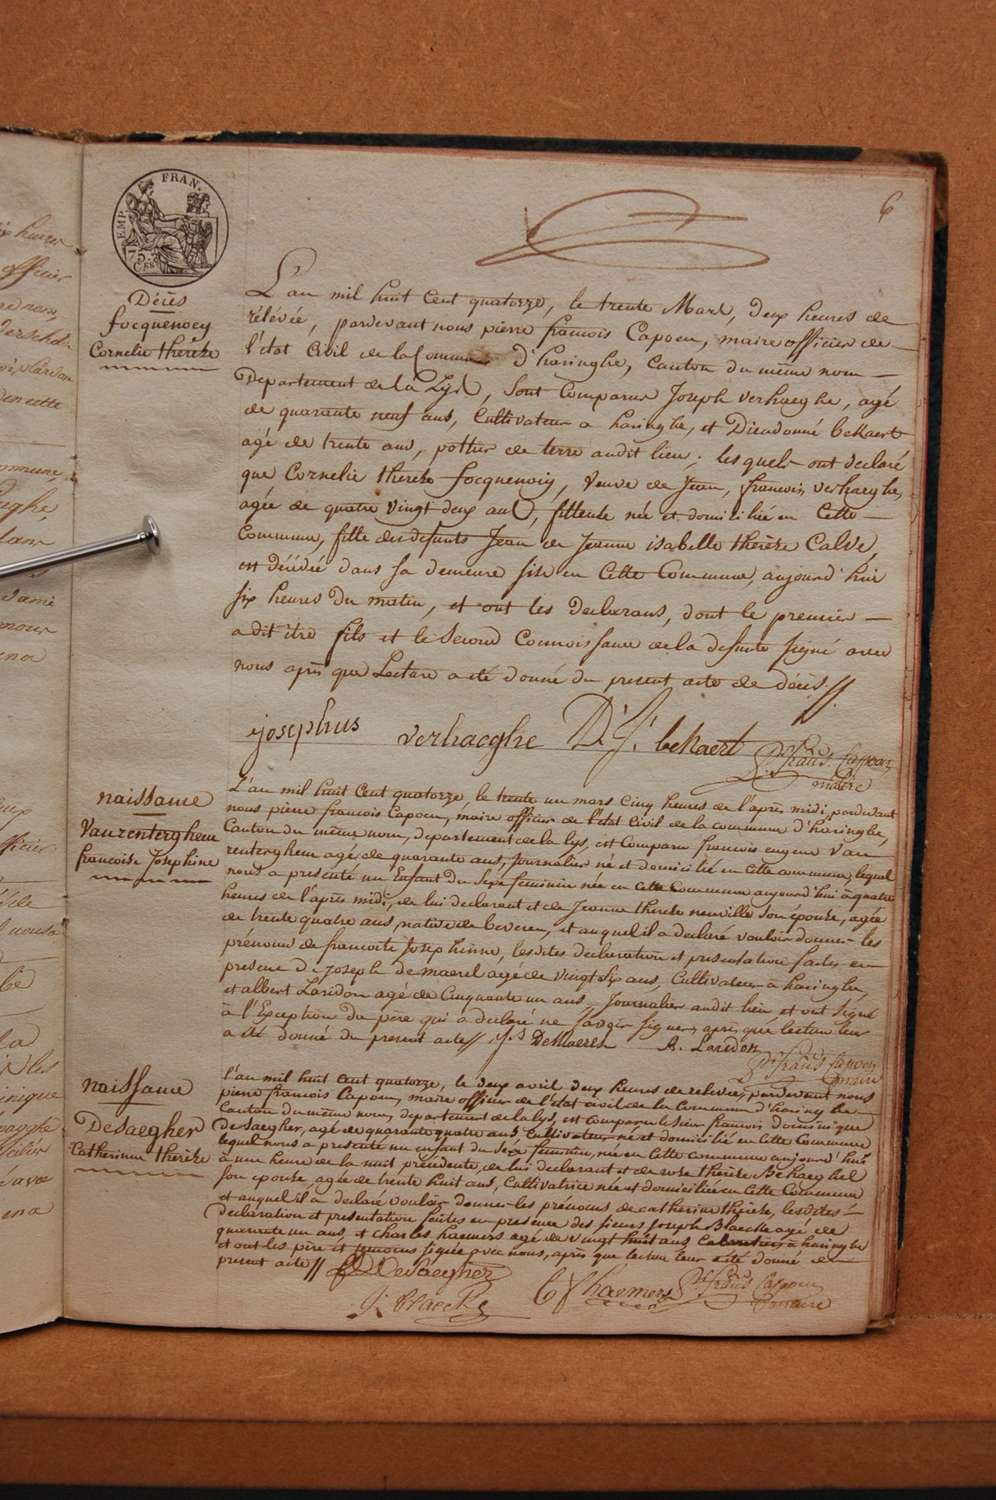 6
EMP. FRAN.
75.
Décès
focquenoey
Cornelie therèse
L'an mil huit Cent quatorze, le trente Mars, deux heures de
rélévée, pardevant nous pierre francois Capoen, maire officier de
l'état Civil de la Commune d'haringhe, Canton du même nom
Departement de la Lys, sont Comparus Joseph verhaeghe, agé
de quarante neuf ans, Cultivateur a haringhe, et Dieudonné beKaert
agé de trente ans, pottier de terre audit lieu; lesquels ont declaré
que Cornelie therese focquenoey, veuve de Jean, francois verhaeghe,
agée de quatre vingt deux ans, fillente née et domiciliée en Cette
Commune, fille des defunts Jean de Jeanne isabelle therèse Calve,
est décédée dans sa demeure sise en Cette Commune, aujourd'hui
six heures du matin, et ont les declarans, dont le premier
a dit être fils et le Second Connoissance de la defunte signé avec
nous après que Lecture a eté donné du present acte de décès //
josephus verhaeghe D. J. beKaert P. frans. Capoen
maire
naissance
Vanrenterghem
francoise Josephine
L'an mil huit Cent quatorze, le trente un mars Cinq heures de l'après midi, pardevant
nous pierre francois Capoen, maire officier de l'état Civil de la commune d'haringhe,
Canton du même nom, departement de la lys, est Comparu francois eugene Van
renterghem agé de quarante ans, Journalier né et domicilié en cette commune, lequel
nous a presenté un Enfant du Sexe feminin née en Cette Commune aujourd'hui à quatre
heures de l'après midi, de lui declarant et de Jeanne therese neuville son épouse, agée
de trente quatre ans, native de beveren, et auquel il a declaré vouloir donner les
prénoms de francoise Josephinne, lesdites declaration et presentation faites en
presence de Joseph demaerel agé de vingt six ans, Cultivateur à haringhe
et albert Laridon agé de Cinquante un ans, Journalier audit lieu et ont Signé
à l'Exception du père qui à declaré ne savoir signer, après que lecture leur
a eté donné du present acte // J. S DeMaerel A. Laridon
P. frans. Capoen
maire
naissance
DeSaegher
Catherinne therèse
l'an mil huit Cent quatorze, le deux avril deux heures de relevée, pardevant nous
pierre francois Capoen, maire officier de l'état civil de la Commune d'haringhe
Canton du même nom, departement de la lys, est comparu le sieur francois dominique
DeSaegher, agé de quarante quatre ans Cultivateur né et domicilié en Cette Commune
lequel nous a presenté un enfant du sexe feminin, née en cette commune aujourd'hui
à une heure de la nuit précédente, de lui declarant et de rose therèse Behaeghel
son epouse, agée de trente huit ans, Cultivatrice née et domiciliée en Cette Commune
et auquel il a declaré vouloir donner les prénoms de catherine therèse, lesdites
declaration et presentation faites en presence des sieurs Joseph Blaecke agé de
quarante un ans, et Charles haemers agé de vingt huit ans Cabaretiers à haringhe
et ont les père et temoins signés avec nous, après que lecture leur a eté donné du
present acte // F D DeSaegher
J. Blaecke C f haemers P. frans. Capoen
maire